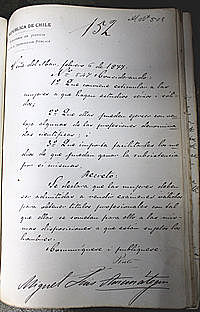 REPÚBLICA DE CHILE
152
Viña del Mar, febrero 6 de 1877.
Nº 547 Considerando:
1º Que conviene estimular a las
mujeres a que hagan estudios serios i sóli-
dos;
2º Que ellas pueden ejercer con ven-
taja algunas de las profesiones denomina-
das científicas; i
3º Que importa facilitarles los me-
dios de que puedan ganar la subsistencia
por sí mismas,
Decreto:
Se declara que las mujeres deben
ser admitidas a rendir exámenes válidos
para obtener títulos profesionales con tal
que ellas se sometan para ello a las mis-
mas disposiciones a que están sujetos los
hombres.
Comuníquese i publíquese.
Pinto
Miguel Luis Amunátegui